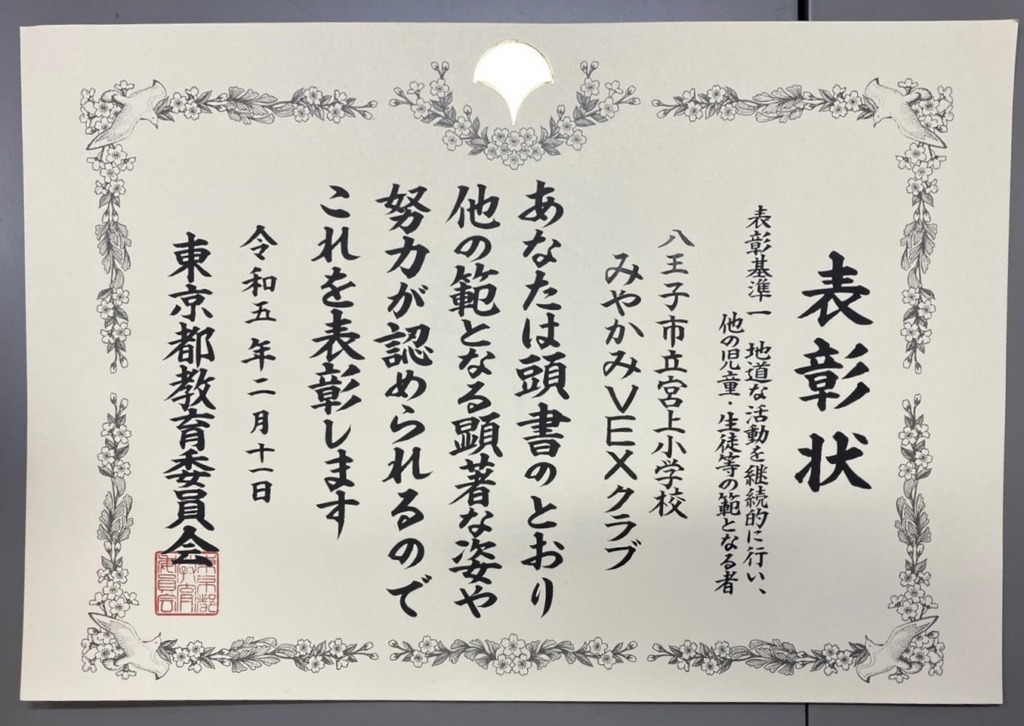 表彰状
表彰基準一 地道な活動を継続的に行い、
他の児童・生徒等の範となる者
八王子市立宮上小学校
みやかみVEXクラブ
あなたは頭書のとおり
他の範となる顕著な姿や
努力が認められるので
これを表彰します
令和五年二月十一日
東京都教育委員会
東京都
教育
委員会